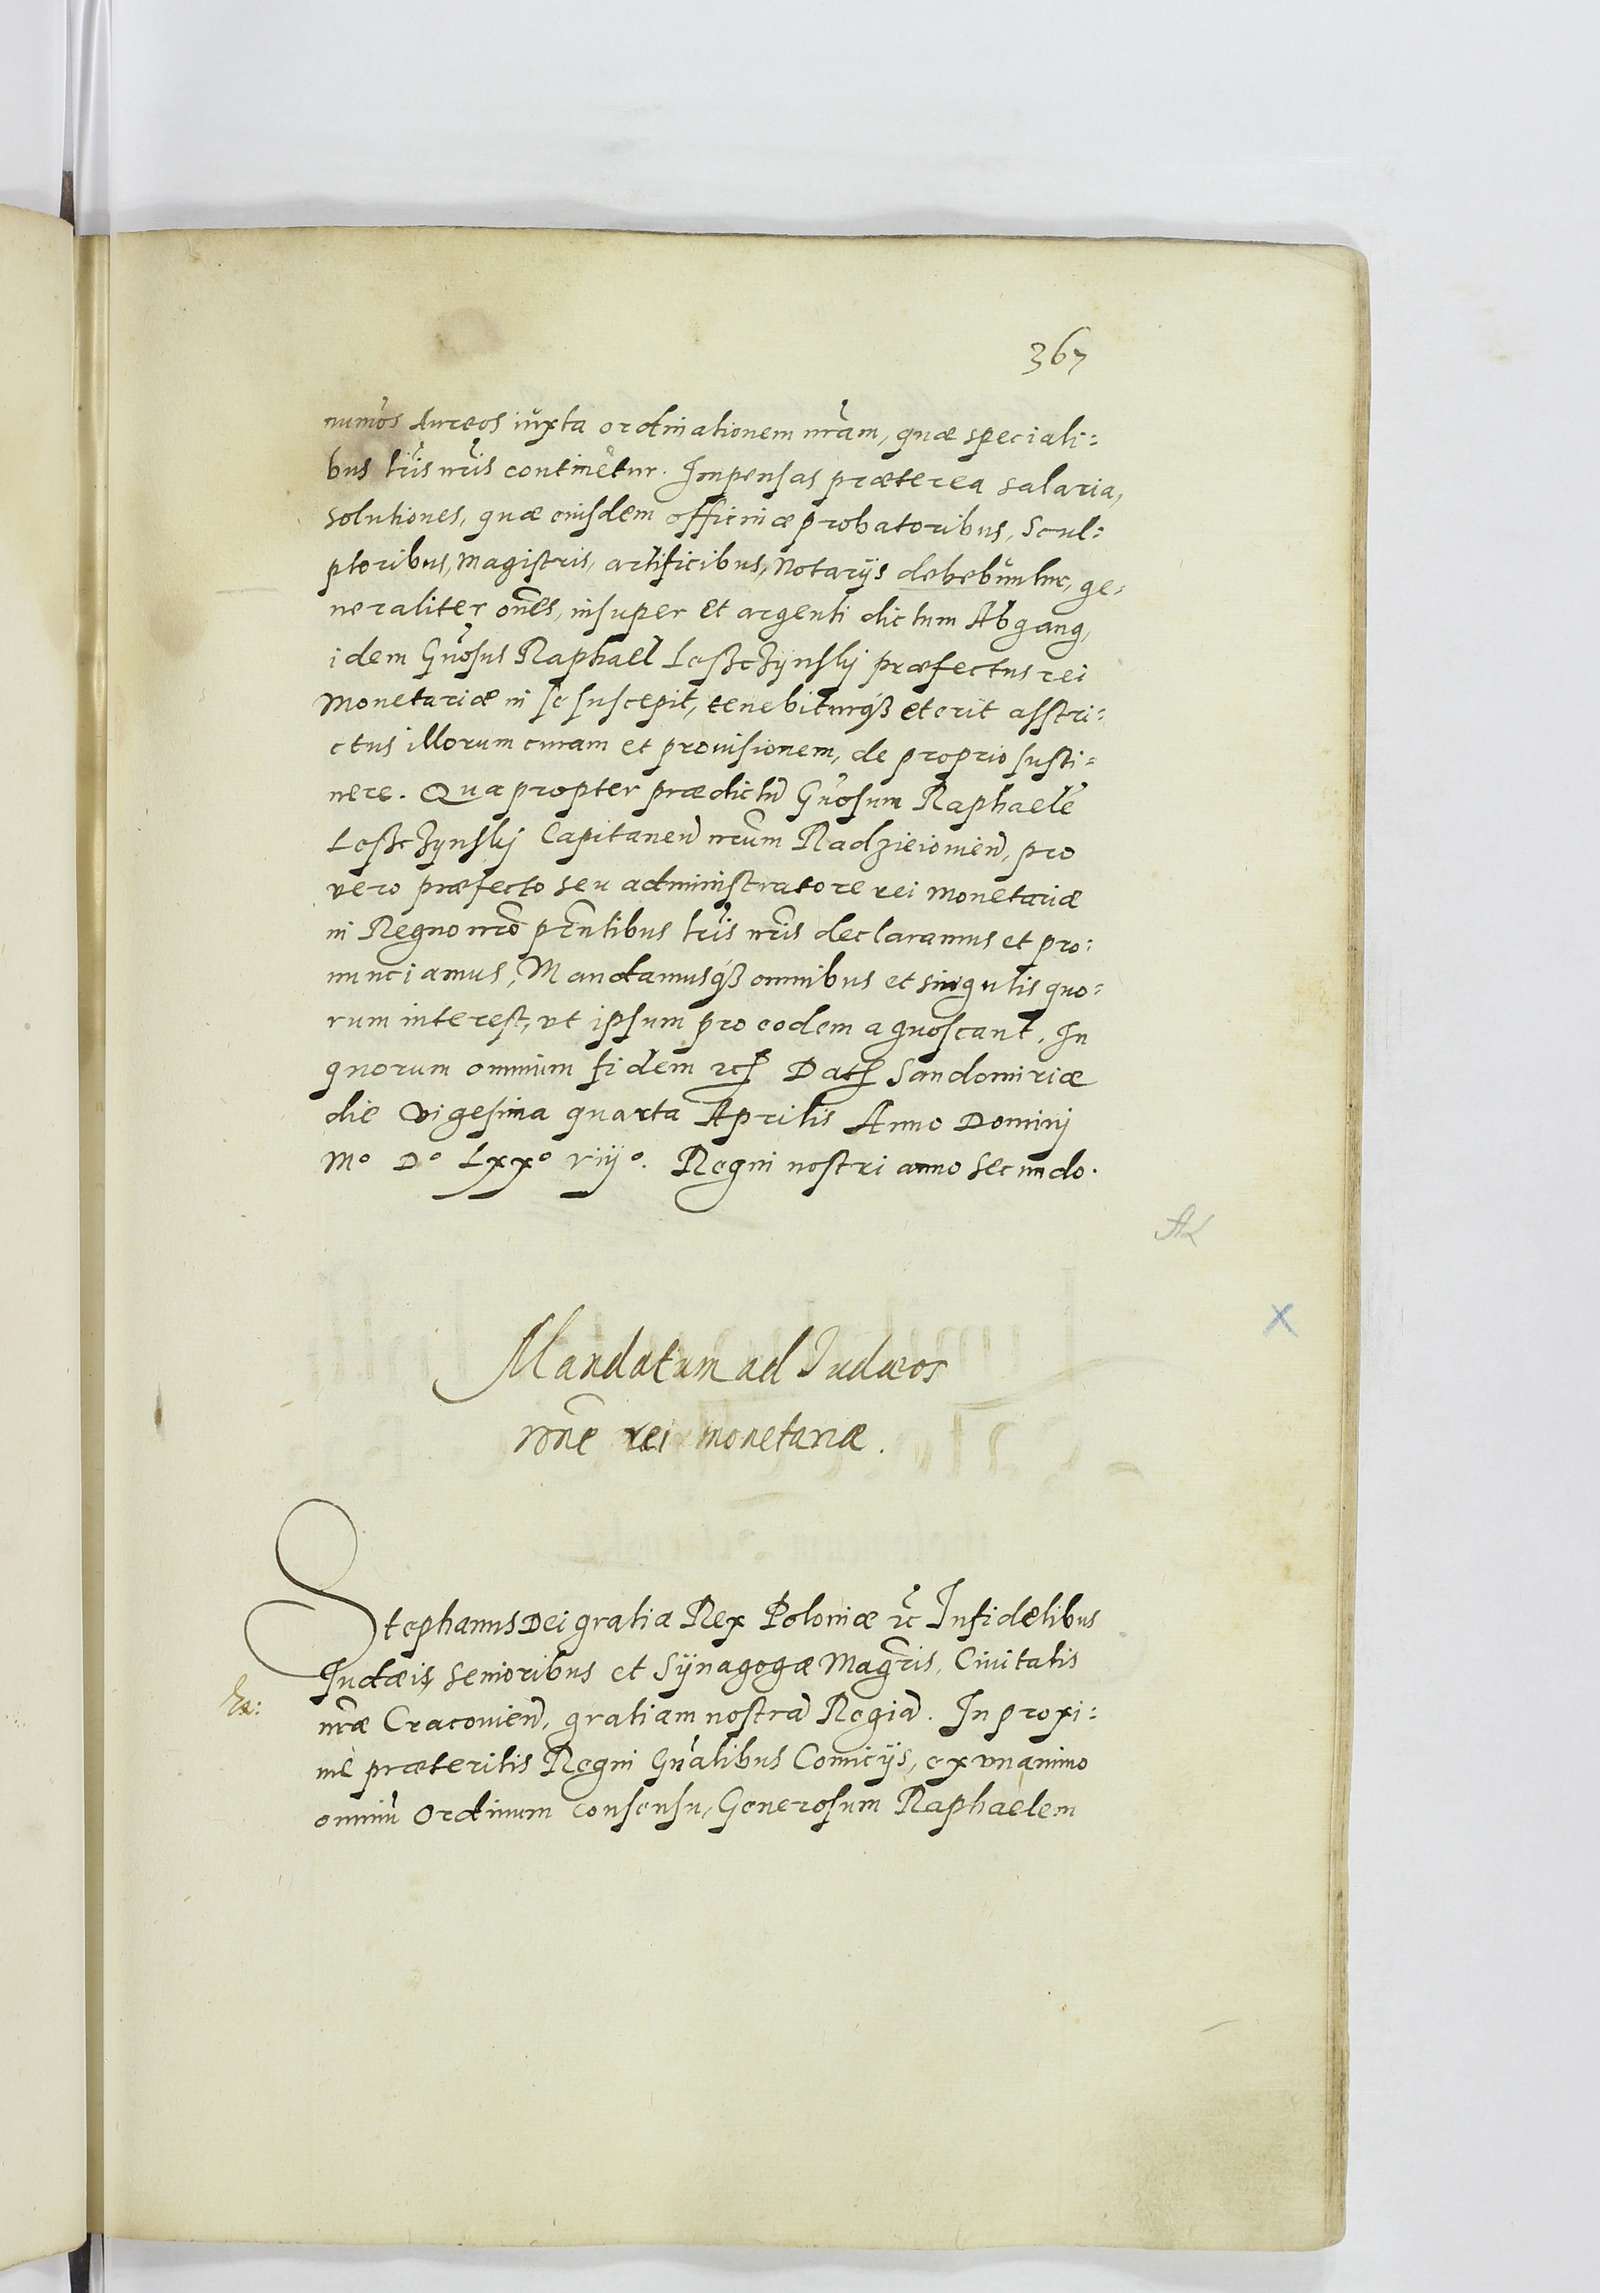 367
numos Aureos iuxta ordinationem nr̃am, quæ speciali:
bus lr̃is nr̃is continetur. Impensas præterea salaria,
solutiones, quæ eiusdem officinæ probatoribus, Scul:
ptoribus, Magistris, artificibus, Notarijs debebuntur, ge:
neraliter om̃es, insuper et argenti dictum Abgang,
idem Gñosus Raphael Leßczÿnskÿ præfectus rei
Monetariæ in se suscepit, tenebiturq́ꝫ et erit asstri:
ctus illorum curam et prouisionem, de proprio susti:
nere. Quapropter prædictũ Gñosum Raphaelẽ
Leßczynskÿ Capitaneũ nr̃um Radzieiovieñ, pro
vero præfecto seu administratore rei Monetariæ
in Regno nr̃o pñtibus lr̃is nr̃is declaramus et pro:
nunciamus, Mandamusq́ꝫ omnibus et singulis quo:
rum interest, vt ipsum pro eodem agnoscant. In
quorum omnium fidem ꝛcꝭ Datꝭ Sandomiriæ
die Vigesima quarta Aprilis Anno Dominj
Mº Dº Lxxº viijº. Regni nostri anno secundo.
AL
X
Mandatum ad Iudæos
rõne rei monetariæ.
Stephanus Dei gratia Rex Poloniæ ꝛc̃ Infidelibus
Iudæis senioribus et Sÿnagogæ Magr̃is, Ciuitatis
nr̃æ Cracouieñ, gratiam nostrã Regiã. In proxi:
mẽ præteritis Regni Gñalibus Comicijs, ex vnanimo
omniũ Ordinum consensu, Generosum Raphaelem